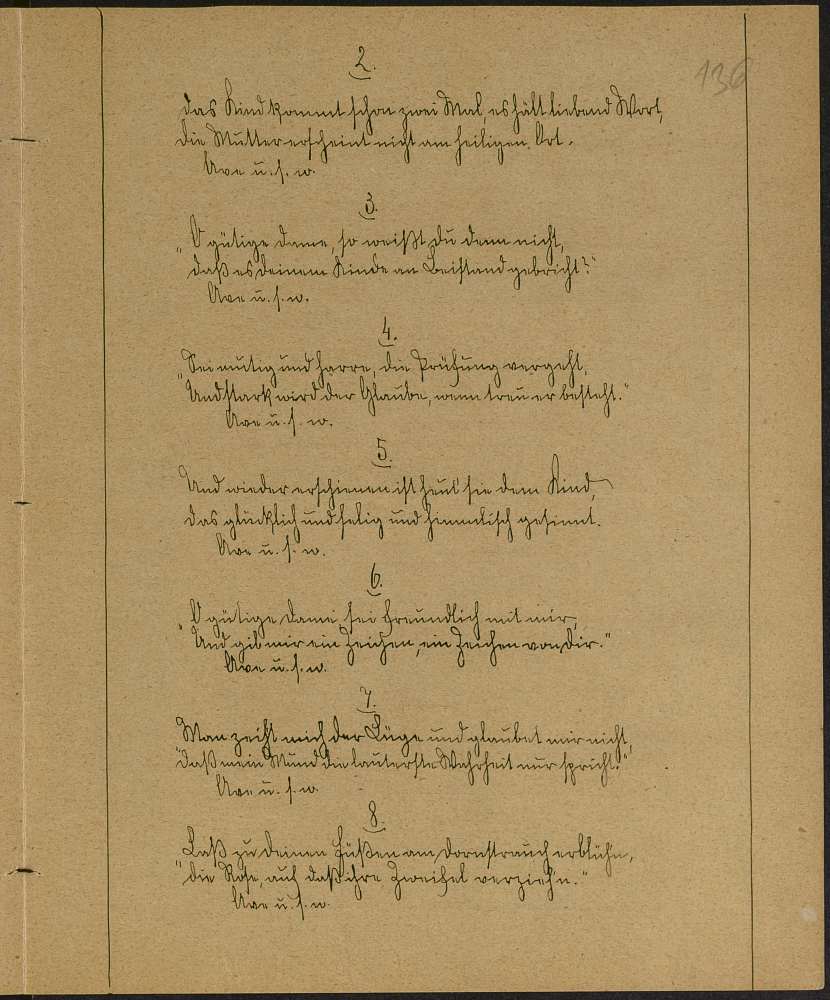 136
2.
Das Kind kommt schon zwei Mal, es hält liebend Wort,
Die Mutter erscheint nicht am heiligen Ort.
Ave u. s. w.
3.
„O gütige Dame, so weißt du denn nicht,
daß es deinem Kinde an Beistand gebricht?“
Ave u. s. w.
4.
„Sei mutig und harre, die Prüfung vergeht,
Und stark wird der Glaube, wenn treu er besteht.“
Ave u. s. w.
5.
Und wieder erschienen ist heut' sie dem Kind,
Das glücklich und selig und himmlisch gesinnt.
Ave u. s. w.
6.
„O gütige Dame, sei freundlich mit mir,
Und gib mir ein Zeichen, ein Zeichen von Dir.“
Ave u. s. w.
7.
Man zeiht mich der Lüge und glaubet mir nicht,
„Daß mein Mund die lauterste Wahrheit nur spricht.“
Ave u. s. w.
8.
Laß zu deinen Füßen am Dornstrauch erblüh'n,
„Die Rose, auf daß ihre Zweifel verzieh'n.“
Ave u. s. w.